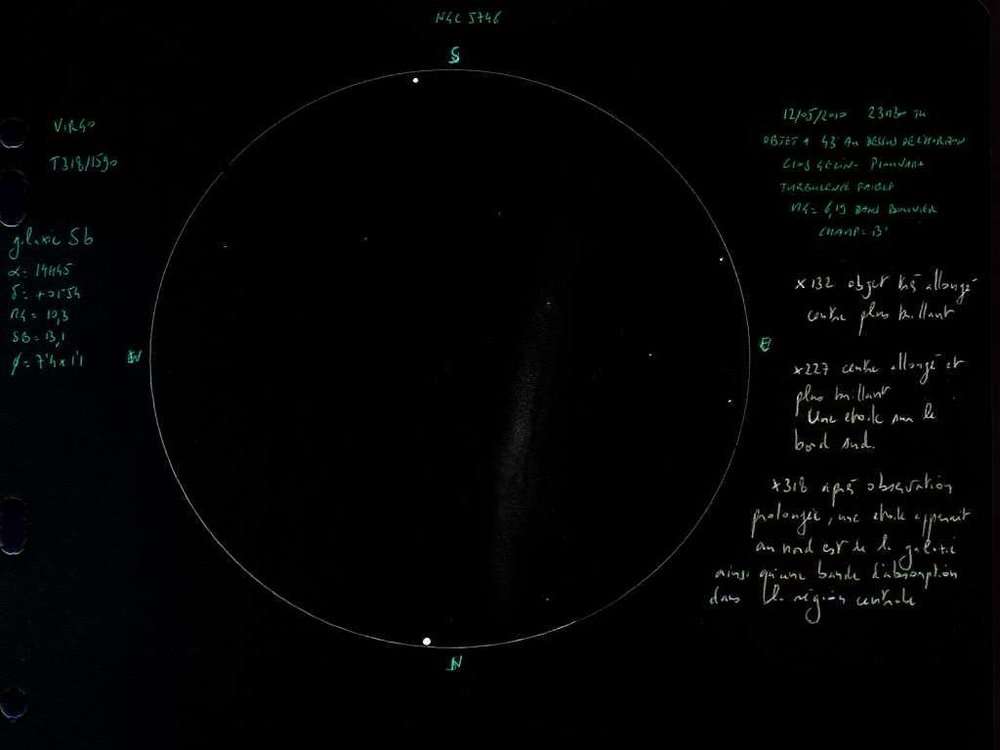 NGC 5746
S
VIRGO
T318/1590
galaxie Sb
α= 14H45
δ= +01°54
MG= 10,3
SB= 13,1
φ= 7'4 x 1'1
W
E
N
12/05/2010 23H30 TU
OBJET A 43° AU DESSUS DE L'HORIZON
TURBULENCE FAIBLE
MG= 6,19 DANS BOUVIER
CHAMP= 13'
x132 objet très allongé
centre plus brillant
x227 centre allongé et
plus brillant
Une étoile sur le
bord sud.
x318 après observation
prolongée, une étoile apparait
au nord est de la galaxie
ainsi qu'une bande d'absorption
dans la région centrale